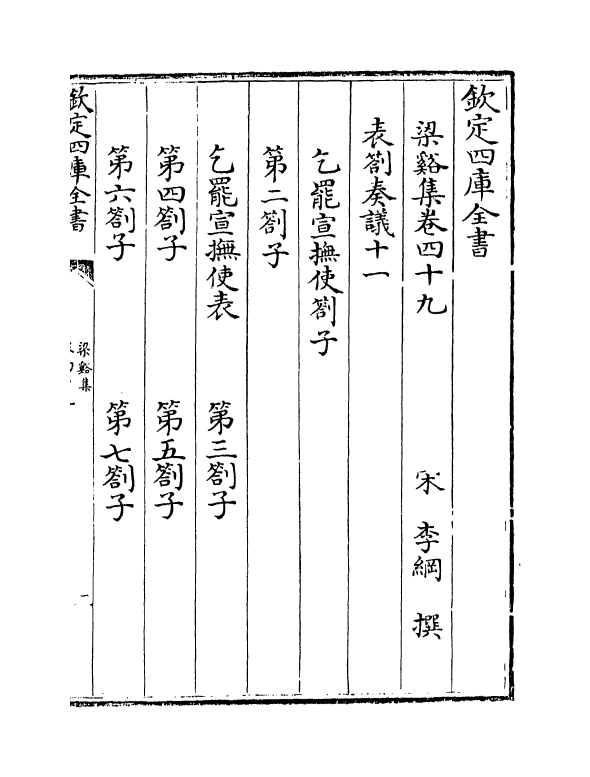 欽定四庫全書
梁谿集卷四十九
宋 李綱 撰
表劄奏議十一
乞罷宣撫使劄子
第二劄子
乞罷宣撫使表 第三劄子
第四劄子 第五劄子
第六劄子 第七劄子
欽定四庫全書
梁谿集
一